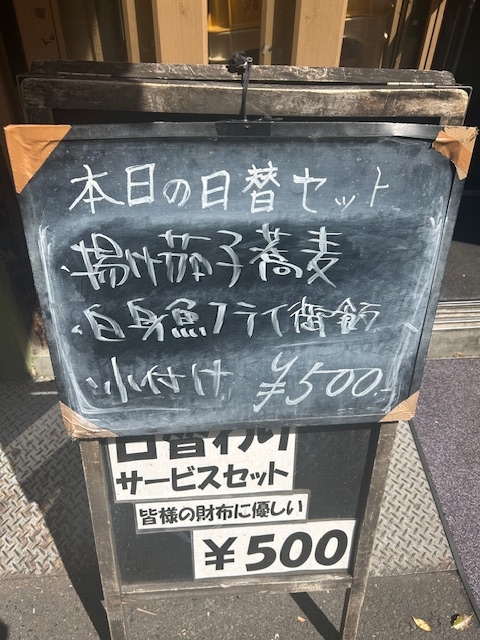 本日の日替セット
揚げ茄子蕎麦
白身魚フライ御飯
小付け ¥500.-
日替わり
サービスセット
皆様の財布に優しい
¥500